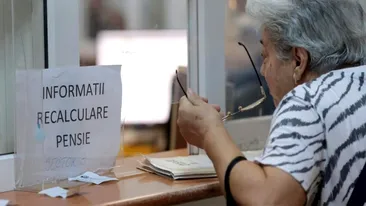 INFORMATII
RECALCULARE
PENSIE